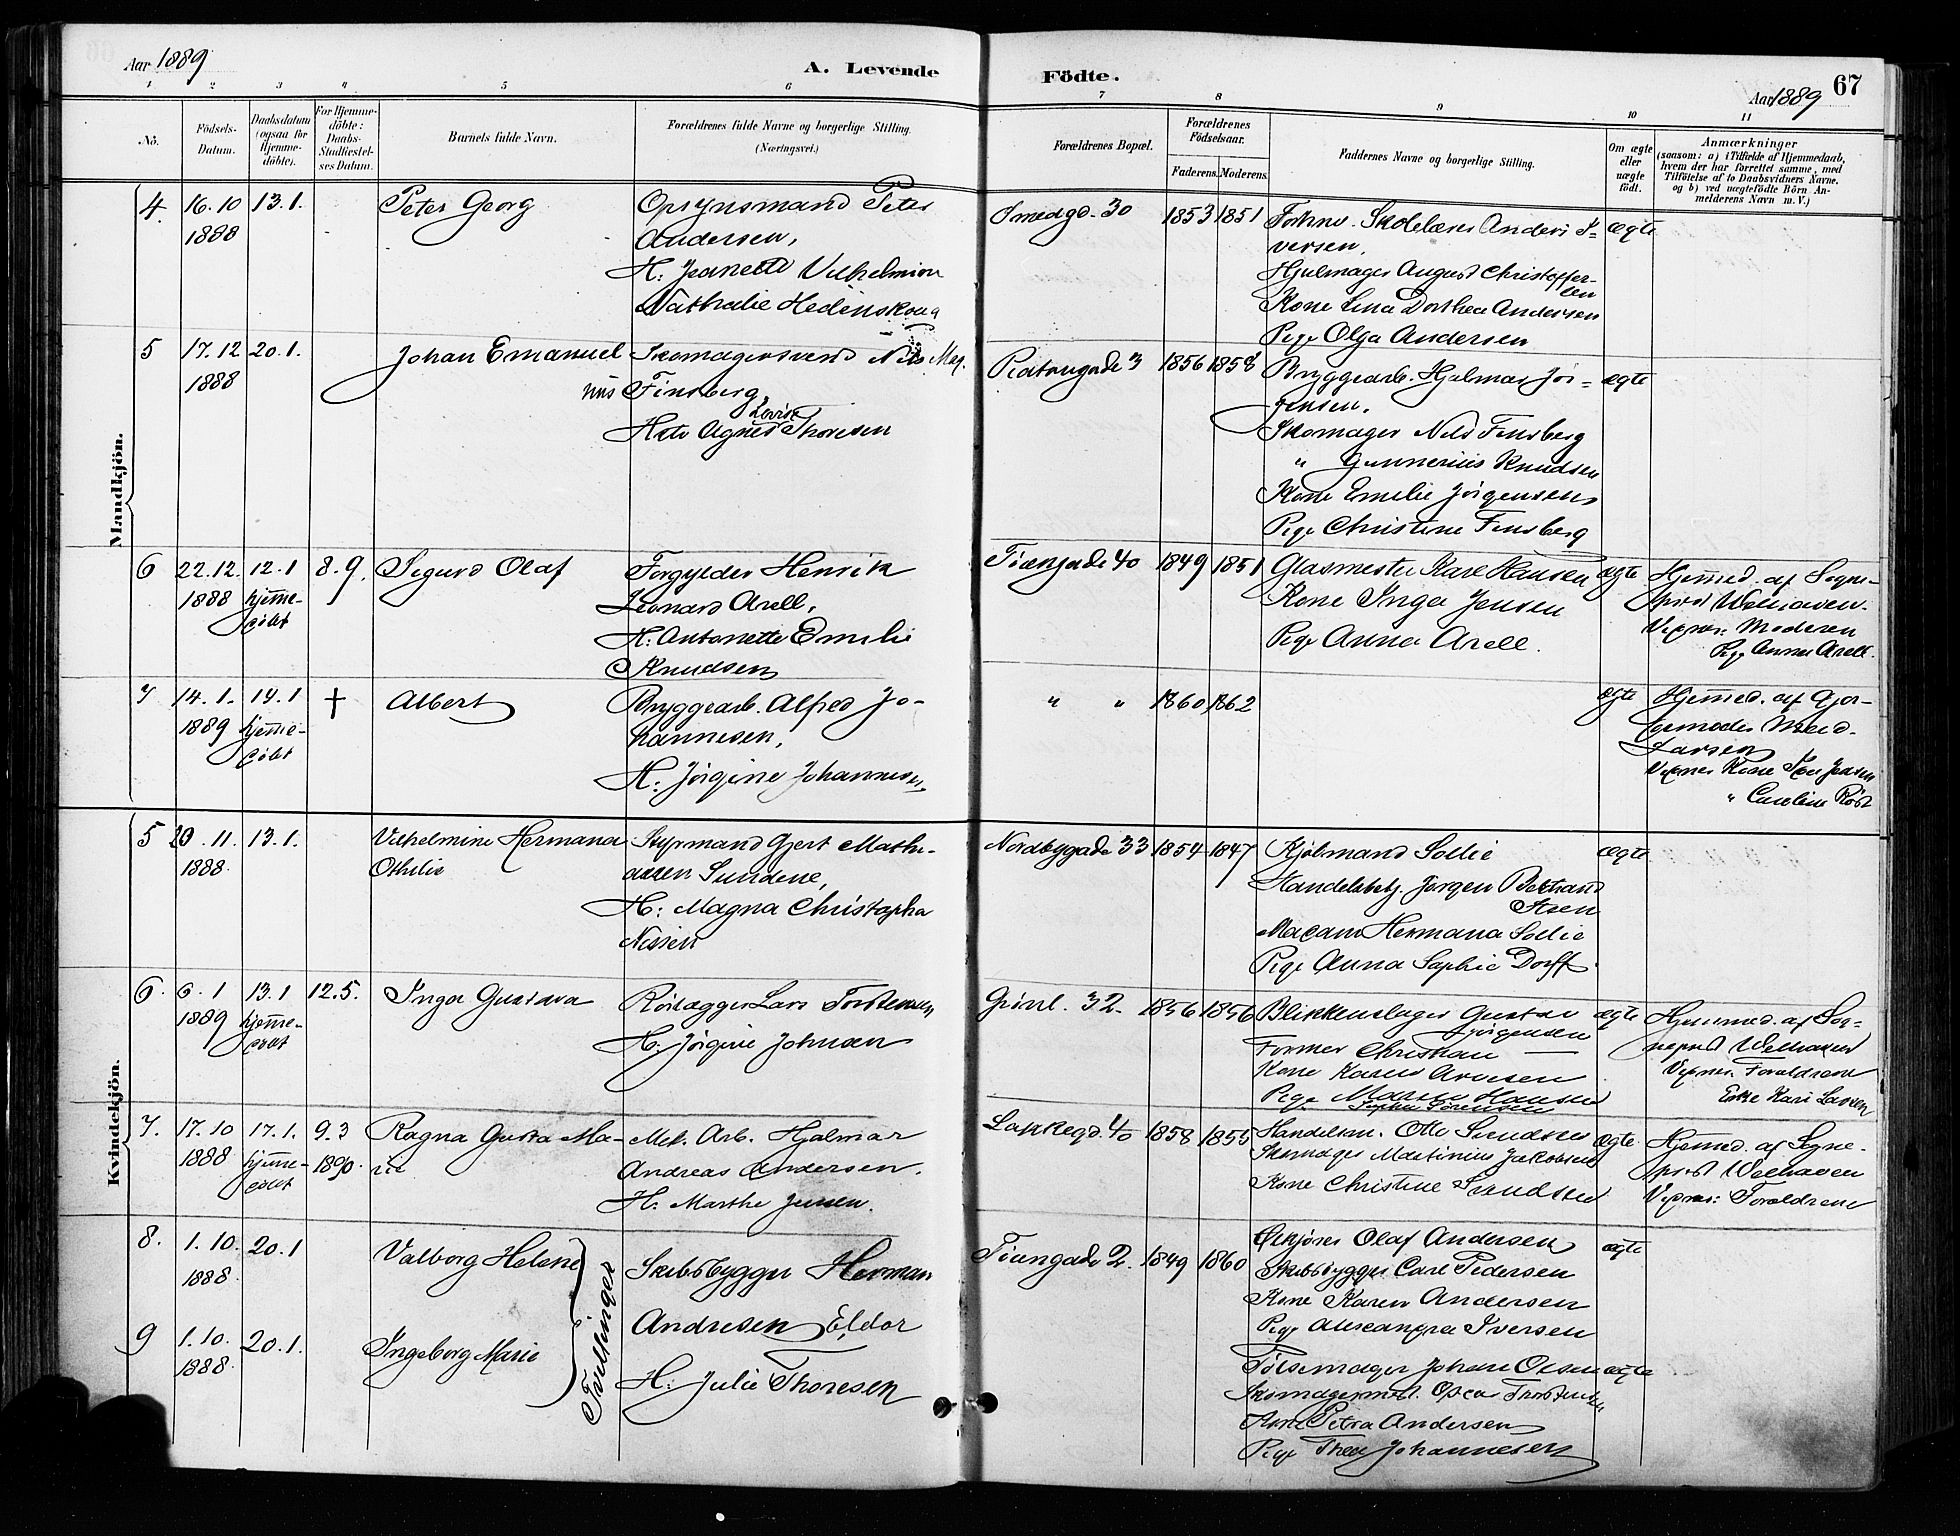 Aar 1889
A. Levende Födte.
67
Aar 1889
1 2 3 4 5 6 7 8 9 10 11
No.
Födsels-Datum.
Daabsdatum (ogsaa for Hjemme-döbte).
For Hjemme-döbte: Daabs-Stadfæstel-ses Datum.
Barnets fulde Navn.
Forældrenes fulde Navne og borgerlige Stilling. (Næringsvei.)
Forældrenes Bopæl.
Forældrenes Födselsaar.
Faderens. Moderens.
Faddernes Navne og borgerlige Stilling.
Om ægte eller uægte födt.
Anmærkninger (saasom: a) i Tilfælde af Hjemmedaab, hvem der har forrettet samme, med Tilföielse af to Daabsvidners Navne, og b) ved uægtefödte Börn An-melderens Navn m. V.)
Mandkjön.
4. 16.10 1888 13.1. Peter Georg
Opsynsmand Peter
Andersen,
H: Jeanette Vilhelmine
Nathalie Hedenskoug
Smedgd. 30 1853 1851
Skolelærer Anders I-
versen,
Hjulmager August Christoffer-
sen
Kone Lina Dorthea Andersen
Pige Olga Andersen
ægte
5 17.12 1888 20.1. Johan Emanuel
Skomagersvend Nils Mag-
nus Finsberg,
Hstr Agnes Lovise Thoresen
Platougade 3 1856 1858
Bryggearb. Hjalmar Jör-
gensen,
Skomager Nils Finsberg
" Gunnerius Knudsen
Kone Emilie Jörgensen
Pige Christine Finsberg
ægte
6 22.12. 1888 12.1 hjemme-döbt 8.9. Sigurd Olaf
Forgylder Henrik
Leonard Arell,
H: Antonette Emilie
Knudsen
Töiengade 40 1849 1851
Glasmester Karl Hansen
Kone Inga Jensen
Pige Anna Arell.
ægte
Hjemmed. af Sogne-
præst Welhaven.
Vidner: Moderen
Pige Anna Arell.
7 14.1. 1889 14.1 hjemme-döbt † Albert
Bryggearb. Alfred Jo-
hannesen,
H: Jörgine Johannesen
" " 1860 1862
ægte
Hjemmed. af Gjor-
demoder
Larsen
Vidner Kone Jensen
" Caroline Röst
Kvindekjön.
5 29.11. 1888. 13.1. Vilhelmine Hermana
Othilie
Styrmand Gjert Mathi-
asen Sundene,
H: Magna Christopha
Nissen
Nordbygade 33 1854 1847
Kjölmand Sollie
Handelsbetj. Jörgen Bertrand
Steen
Madam Hermana Sollie
Pige Anna Sophie Dorff.
ægte
6. 6.1 1889 13.1 hjemme-döbt 12.5. Inga Gustava
Rörlægger Lars Torstensen
H: Jörgine Johnsen
Grönl. 32. 1856 1856
Blikkenslager Gustav
Jörgensen
Former Christian —
Kone Karen Arnesen
Pige Maren Hansen
Sophie Sörensen
ægte
Hjemmed. af Sog-
nepræst Welhaven
Vidner: Forældrene
Enke Kari Larsen
7. 17.10 1888 17.1. hjemme-döbt 9.3 1890. Ragna Gusta Ma-
rie
Mek. Arb. Hjalmar
Andreas Andersen.
H: Marthe Jensen.
Lakkegd. 40 1858 1855
Handelsm. Otto Svendsen
Skomager Martinius Jakobsen
Kone Christine Svendsen
ægte
Hjemmed. af Sogne-
præst Welhaven
Vidner: Forældrene
8. 1.10. 1888. 20.1 Valborg Helene
Tvillinger
Skibsbygger Herman
Andresen Eldor
H: Julie Thoresen
Töiengade 2. 1849 1860
Olaf Andersen
Skibsbygger Carl Pedersen
Kone Karen Andersen
Pige Alexandra Iversen
ægte
9 1.10. 1888. 20.1. Ingeborg Marie
Pölsemager Johan Olsen ægte
Skomagermest. Oscar Thorstensen
Kone Petra Andersen
Pige Thea Johannesen